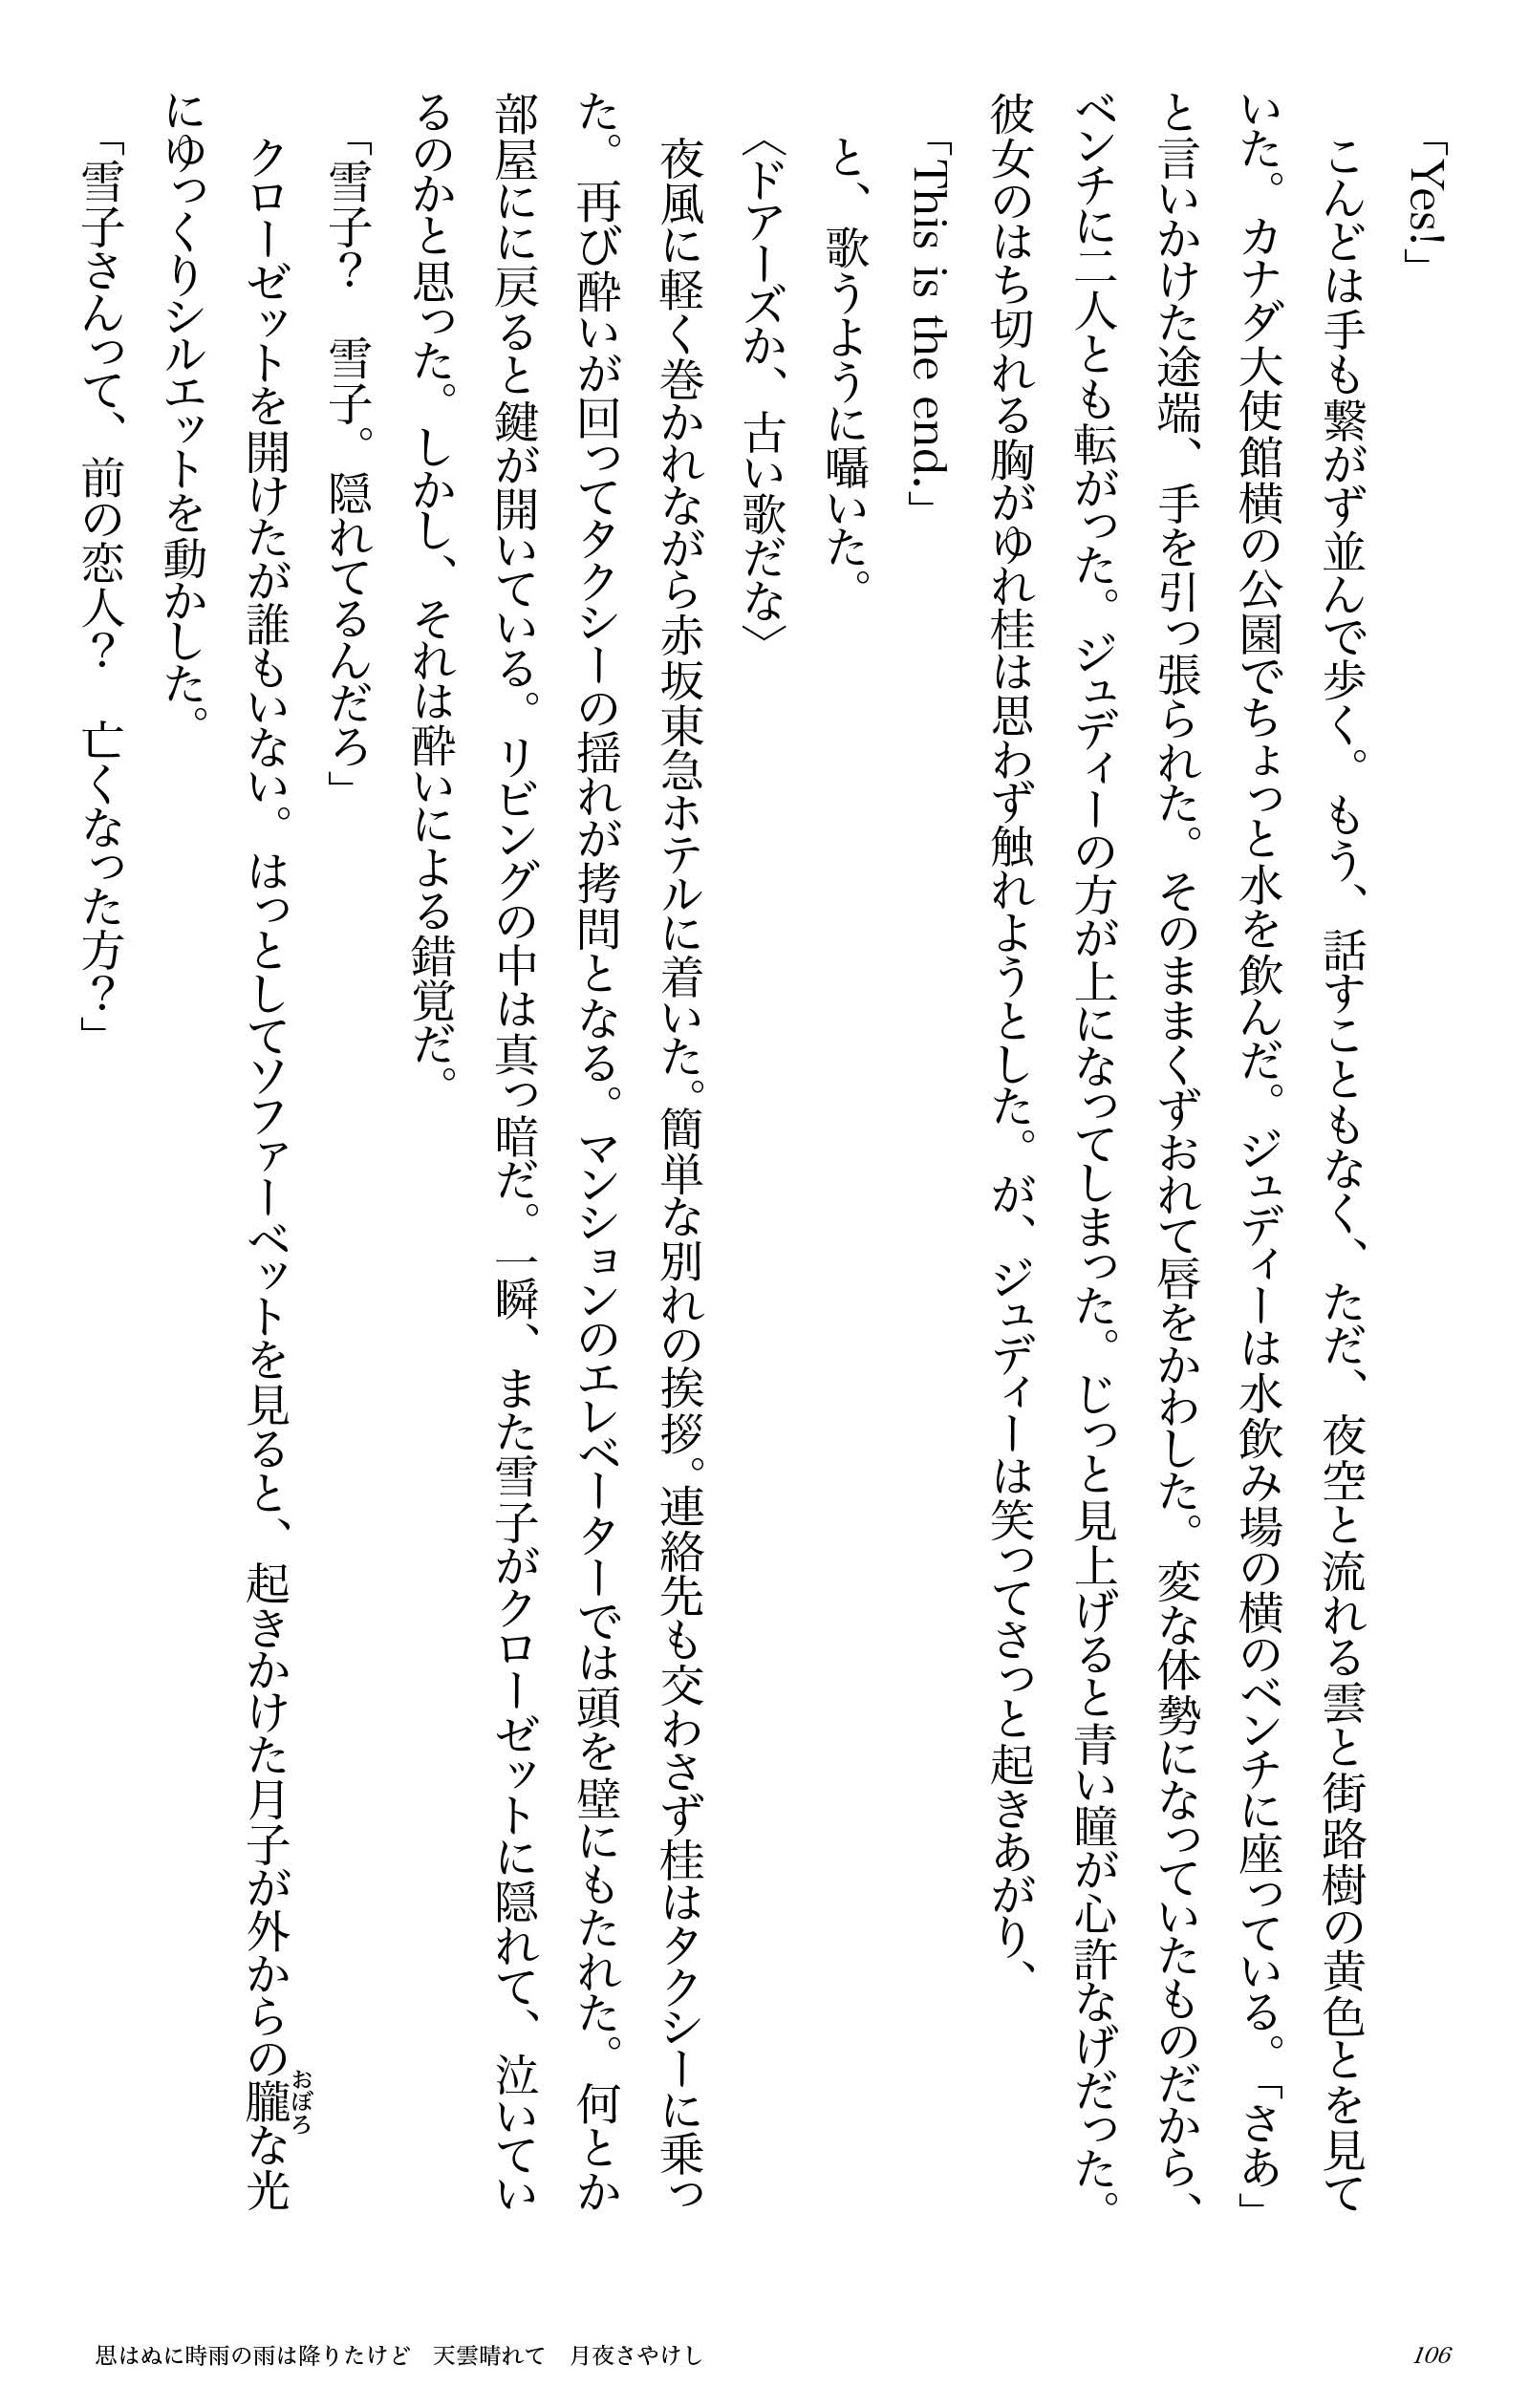 「Yes!」
　こんどは手も繋がず並んで歩く。もう、話すこともなく、ただ、夜空と流れる雲と街路樹の黄色とを見て
いた。カナダ大使館横の公園でちょっと水を飲んだ。ジュディーは水飲み場の横のベンチに座っている。「さあ」
と言いかけた途端、手を引っ張られた。そのままくずおれて唇をかわした。変な体勢になっていたものだから、
ベンチに二人とも転がった。ジュディーの方が上になってしまった。じっと見上げると青い瞳が心許なげだった。
彼女のはち切れる胸がゆれ桂は思わず触れようとした。が、ジュディーは笑ってさっと起きあがり、
「This is the end.」
　と、歌うように囁いた。
〈ドアーズか、古い歌だな〉
　夜風に軽く巻かれながら赤坂東急ホテルに着いた。簡単な別れの挨拶。連絡先も交わさず桂はタクシーに乗っ
た。再び酔いが回ってタクシーの揺れが拷問となる。マンションのエレベーターでは頭を壁にもたれた。何とか
部屋にに戻ると鍵が開いている。リビングの中は真っ暗だ。一瞬、また雪子がクローゼットに隠れて、泣いてい
るのかと思った。しかし、それは酔いによる錯覚だ。
「雪子？　雪子。隠れてるんだろ」
　クローゼットを開けたが誰もいない。はっとしてソファーベットを見ると、起きかけた月子が外からの朧おぼろな光
にゆっくりシルエットを動かした。
「雪子さんって、前の恋人？　亡くなった方？」
思はぬに時雨の雨は降りたけど　天雲晴れて　月夜さやけし
106